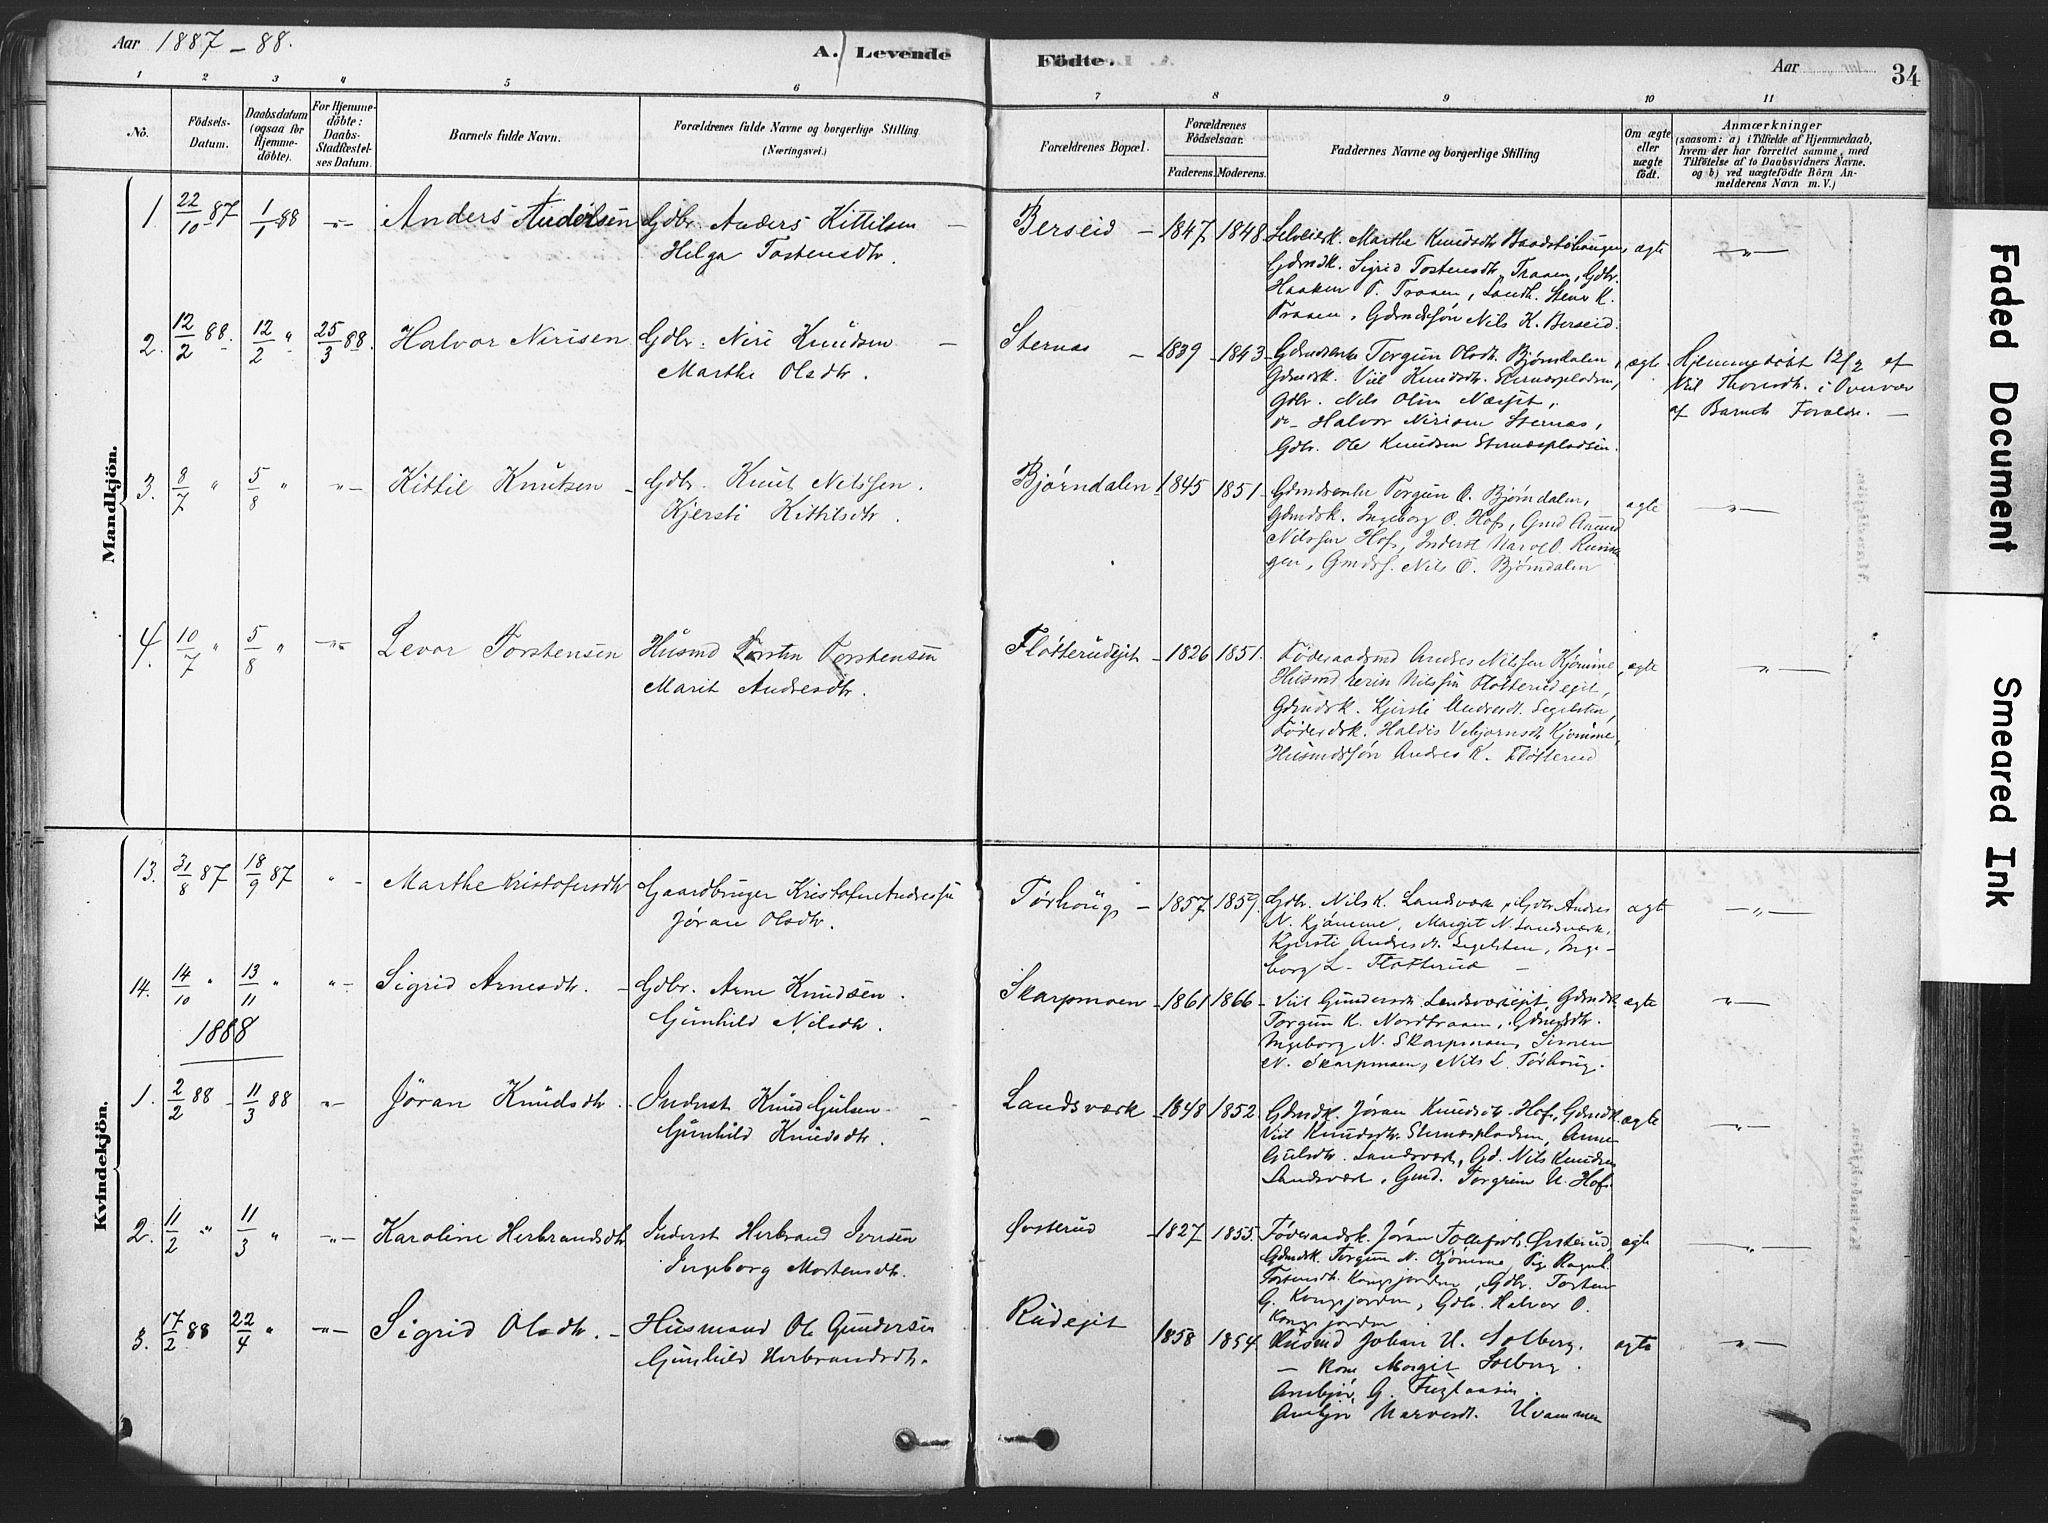 Aar 1887-88.
A. Levende Födte.
Aar
34
1 2 3 4 5 6 7 8 9 10 11
No.
Födsels-Datum.
Daabsdatum (ogsaa for Hjemme-döbte).
For Hjemme-döbte: Daabs-Stadfæstel-ses Datum.
Barnets fulde Navn.
Forældrenes fulde Navne og borgerlige Stilling
(Næringsvei.)
Forældrenes Bopæl.
Forældrenes Födselsaar.
Faderens. Moderens.
Faddernes Navne og borgerlige Stilling
Om ægte eller uægte födt.
Anmærkninger
(saasom: a) i Tilfælde af Hjemmedaab, hvem der har forrettet samme, med Tilföielse af to Daabsvidners Navne. og b) ved uægtefödte Börn An-melderens Navn m. V.)
Mandkjön.
1. 22/10 87 1/1 88 -"- Anders Andersen Gdbr. Anders Kittilsen -
Helga Tostensdtr
Berseid - 1847 1848 Selveierk. Marthe Knudsdtr Baadstøhaugen, ægte -"-
Gdmdk. Sigrid Tostensdtr Traaen, Gdbr.
Haaken T. Traaen, Landh. Stener K.
Traaen, Gdmdssøn Nils K. Berseid.
2. 12/2 88. 12/2 " 25/3 88. Halvor Nirisen Gdbr. Niri Knudsen -
Marthe Olsdtr.
Sternæs - 1839 1843 Gdmdsenke Torgun Olsdtr. Bjørndalen, ægte Hjemmedøbt 12/2 af
Gdmdk. Viil Knudsdtr. Sternæspladsen, Viil Thorsdtr. i Overvær
Gdbr. Nils Olsen Næsset, af Barnets Forældre. -
do Halvor Nirisen Sternæs,
Gdbr. Ole Knudsen Sternæspladsen.
3. 8/7 " 5/8 " "- Kittil Knutsen - Gdbr. Knut Nilssen.
Kjersti Kittilsdtr.
Bjørndalen 1845 1851. Gdmdsenke Torgun O. Bjørndalen, ægte -"-
Gdmdsk. Ingeborg O. Hof, Gmd Amund
Nilssen Hof, Inderst Narve O.
gen, Gmdss. Nils O. Bjørndalen
4. 10/7 " 5/8 " -"- Levor Torstensen Husmd Torsten Torstensen
Marit Andresdtr.
Fløtterudejet - 1826 1851. Føderaadsmd Andres Nilssen Kjømme, ægte -"-
Husmd Nilssen Fløtterudejet,
Gdmdsk. Kjersti Andresdt. Segelsten,
Føderdsk. Haldis Vebjørnsdtr Kjømme,
Husmdssøn Andres K. Fløtterud
Kvindekjön.
13. 31/8 87 18/9 87 "- Marthe Kristofersdtr Gaardbruger Kristofer Andressen
Jøran Olsdtr.
Tørhoug - 1857 1859. Gdbr. Nils K. Landsværk, Gdbr Andres ægt -"-
N. Kjømme, Margit N. Landsværk,
Kjersti Andresdt. Segelsten, Inge-
borg L. Fløtterud -
14. 14/10 " 13/11 " "- Sigrid Arnesdtr. - Gdbr. Arne Knudsen.
Gunhild Nilsdtr.
Skarpmoen - 1861 1866 - Viil Gundersdt. Landsværkejet, Gdmdk. ægte "-
Torgun K. Nordtraaen, Gdmdsdtr.
Ingeborg N. Skarpmoen, Simen
N. Skarpmoen, Nils L. Tørhoug.
1888
1. 2/2 88 - 11/3 88 "- Jöran Knudsdtr. - Inderst Knud Gulsen -
Gunhild Knudsdtr.
Landsværk - 1848 1852 Gdmdk. Jøran Knudsdtr Hof, Gdmdk. ægte -"-
Viil Knudsdtr. Sternæspladsen, Anne
Gulsdtr. Landsværk, Gd. Nils Knudsen
Landsværk, Gmd. Torgrim N. Hof.
2. 11/2 " 11/3 " -"- Karoline Herbrandsdtr Inderst Herbrand Iversen
Ingeborg Mortensdtr.
Østerud 1827 1855. Føderaadsk. Jøran Tollefsdt. Østerud, ægte -"-
Gdmdsk. Torgun N. Kjømme, Pige Ragnh.
Tostensdt. Kongsjorden, Gdbr. Tosten
G. Kongsjorden, Gdbr. Halvor O.
Kongsjorden
3. 17/2 88 22/4 " -"- Sigrid Olsdtr. - Husmand Ole Gundersen
Gunhild Herbrandsdtr.
Rudejet 1858 1854. Husmd Johan H. Solberg. ægte "-
- Kone Margit Solberg.
Ambjør G.
Ambjør Narvesdt. Hvammen
Faded Document
Smeared Ink